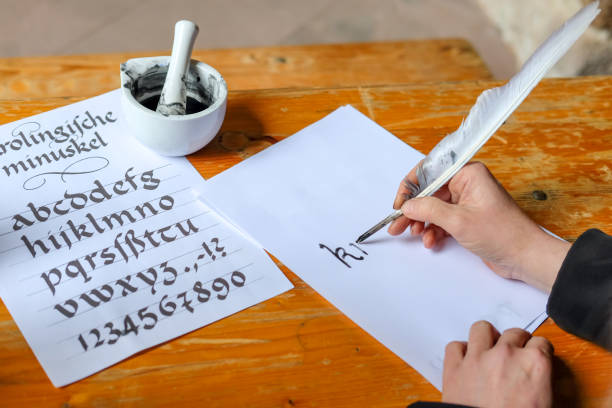 arolingiſche
minuskel
abcdefg
hijklmno
pqrsſßtu
vwxyz.,-!?
1234567890